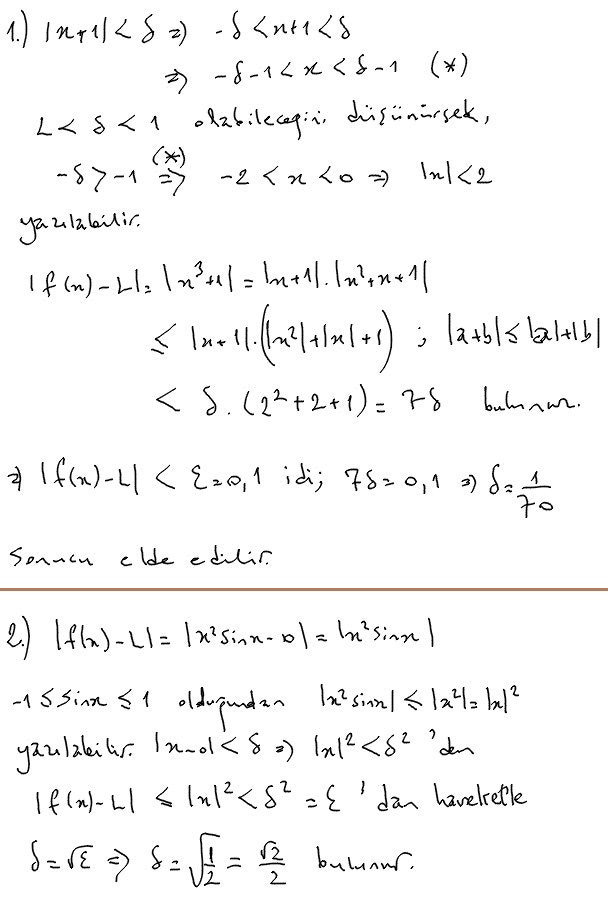 1.) |x+1| < δ ⇒ -δ < x+1 < δ
⇒ -δ-1 < x < δ-1 (*)
L < δ < 1 olabileceğini düşünürsek,
-δ > -1 (*)⇒ -2 < x < 0 ⇒ |x| < 2
yazılabilir.
|f(x)-L| = |x³+1| = |x+1|.|x²+x+1|
≤ |x+1|.(|x²|+|x|+1) ; |a+b| ≤ |a|+|b|
< δ.(2²+2+1) = 7δ bulunur.
⇒ |f(x)-L| < ε=0,1 idi; 7δ=0,1 ⇒ δ=1/70
sonucu elde edilir.
2.) |f(x)-L| = |x²sinx-0| = |x²sinx|
-1 ≤ sinx ≤ 1 olduğundan |x²sinx| ≤ |x²| = |x|²
yazılabilir. |x-0| < δ ⇒ |x|² < δ² 'den
|f(x)-L| ≤ |x|² < δ² = ε 'dan hareketle
δ = √ε ⇒ δ = √(1/2) = √2/2 bulunur.